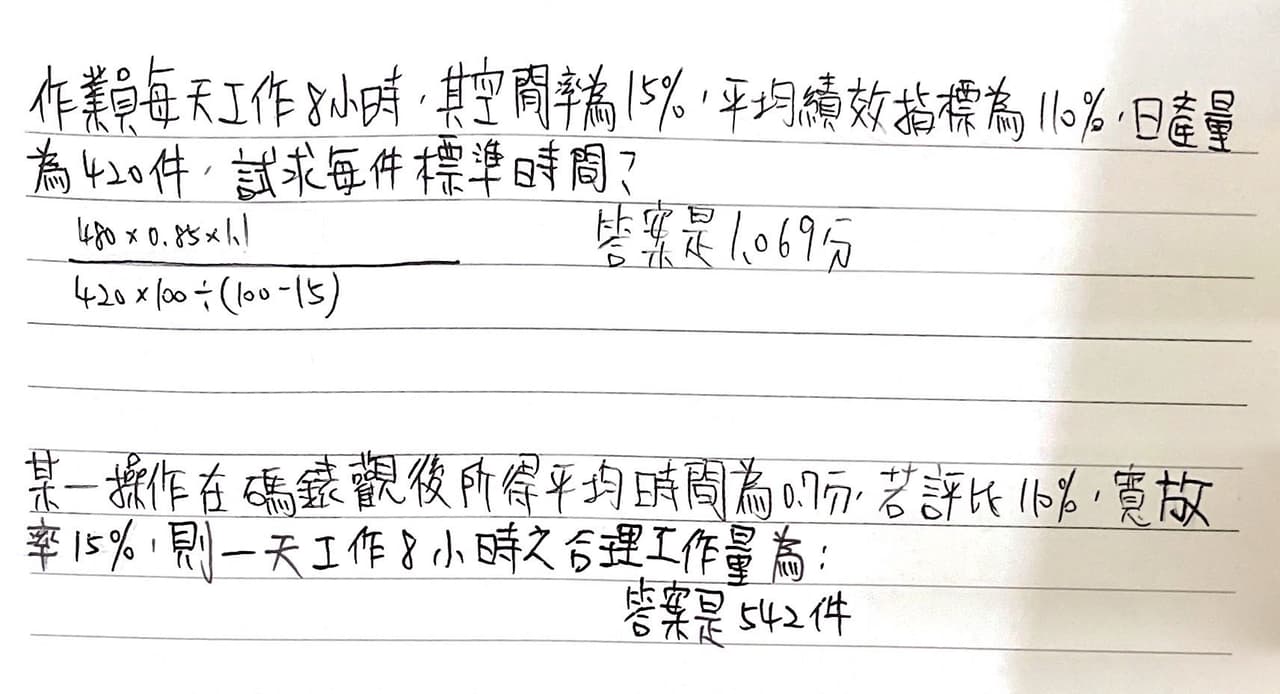 作業員每天工作8小時,其空閒率為15%,平均績效指標為110%,日產量
為420件,試求每件標準時間?
480×0.85×1.1
420×100÷(100-15)
答案是1.069分
某一操作在碼錶觀後所得平均時間為0.7分,若評比110%,寬放
率15%,則一天工作8小時之合理工作量為:
答案是542件